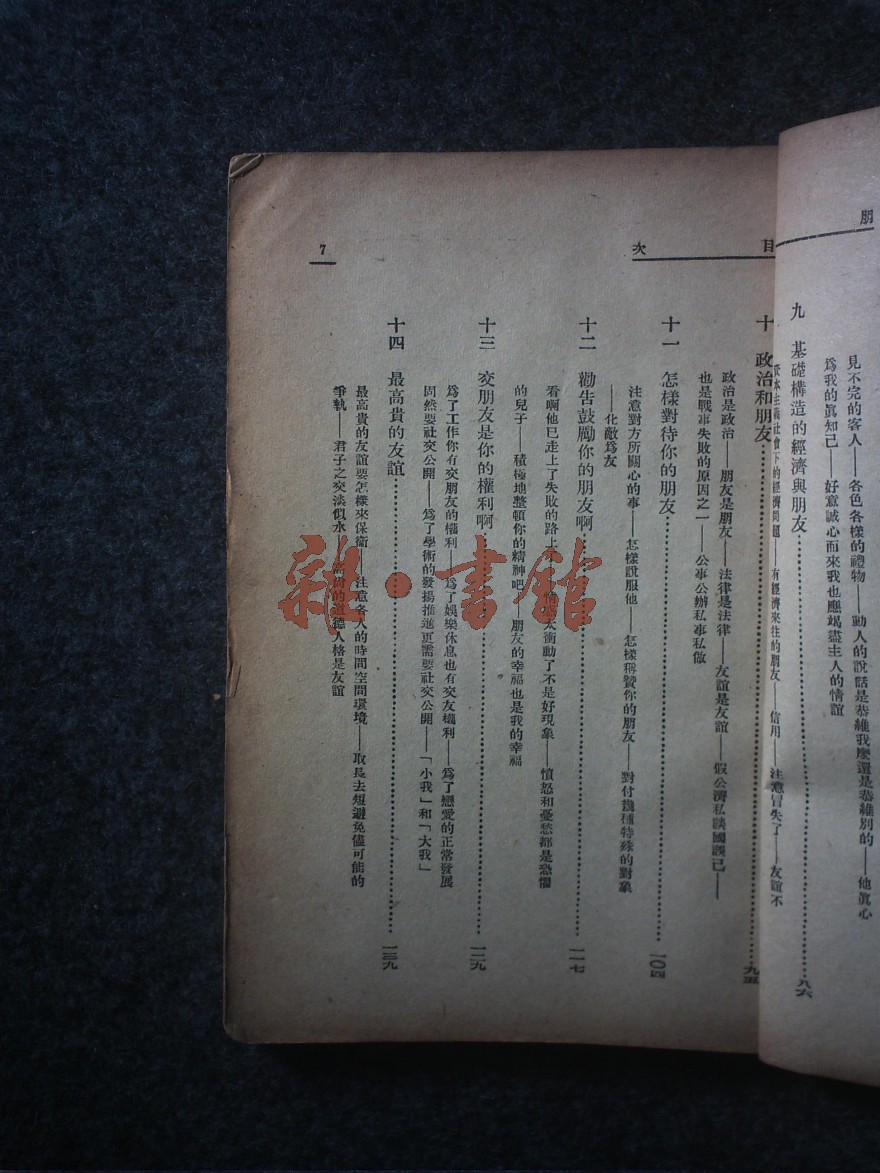 朋
見不完的客人——各色各樣的禮物——動人的說話是恭維我麼還是恭維別的——他眞心
爲我的眞知己——好意誠心而來我也應竭盡主人的情誼
九 基礎構造的經濟與朋友……八六
資本主義社會下的經濟問題——有經濟來往的朋友——信用——注意冒失了——友誼不
目次
十 政治和朋友……九五
政治是政治——朋友是朋友——法律是法律——友誼是友誼——假公濟私誤國誤己——
也是戰事失敗的原因之一——公事公辦私事私做
十一 怎樣對待你的朋友……一〇四
注意對方所關心的事——怎樣說服他——怎樣稱贊你的朋友——對付幾種特殊的對象
——化敵爲友
十二 勸告鼓勵你的朋友啊……一一七
看啊他已走上了失敗的路上 太衝動了不是好現象——憤怒和憂愁都是恐懼
的兒子——積極地整頓你的精神吧——朋友的幸福也是我的幸福
十三 交朋友是你的權利啊……一二九
爲了工作你有交朋友的權利——爲了娛樂休息也有交友權利——爲了戀愛的正常發展
固然要社交公開——爲了學術的發揚推進更需要社交公開——「小我」和「大我」
十四 最高貴的友誼……一三九
最高貴的友誼要怎樣來保衛——注意各人的時間空間環境——取長去短避免儘可能的
爭執——君子之交淡似水——高貴的道德人格是友誼
7
雜·書館